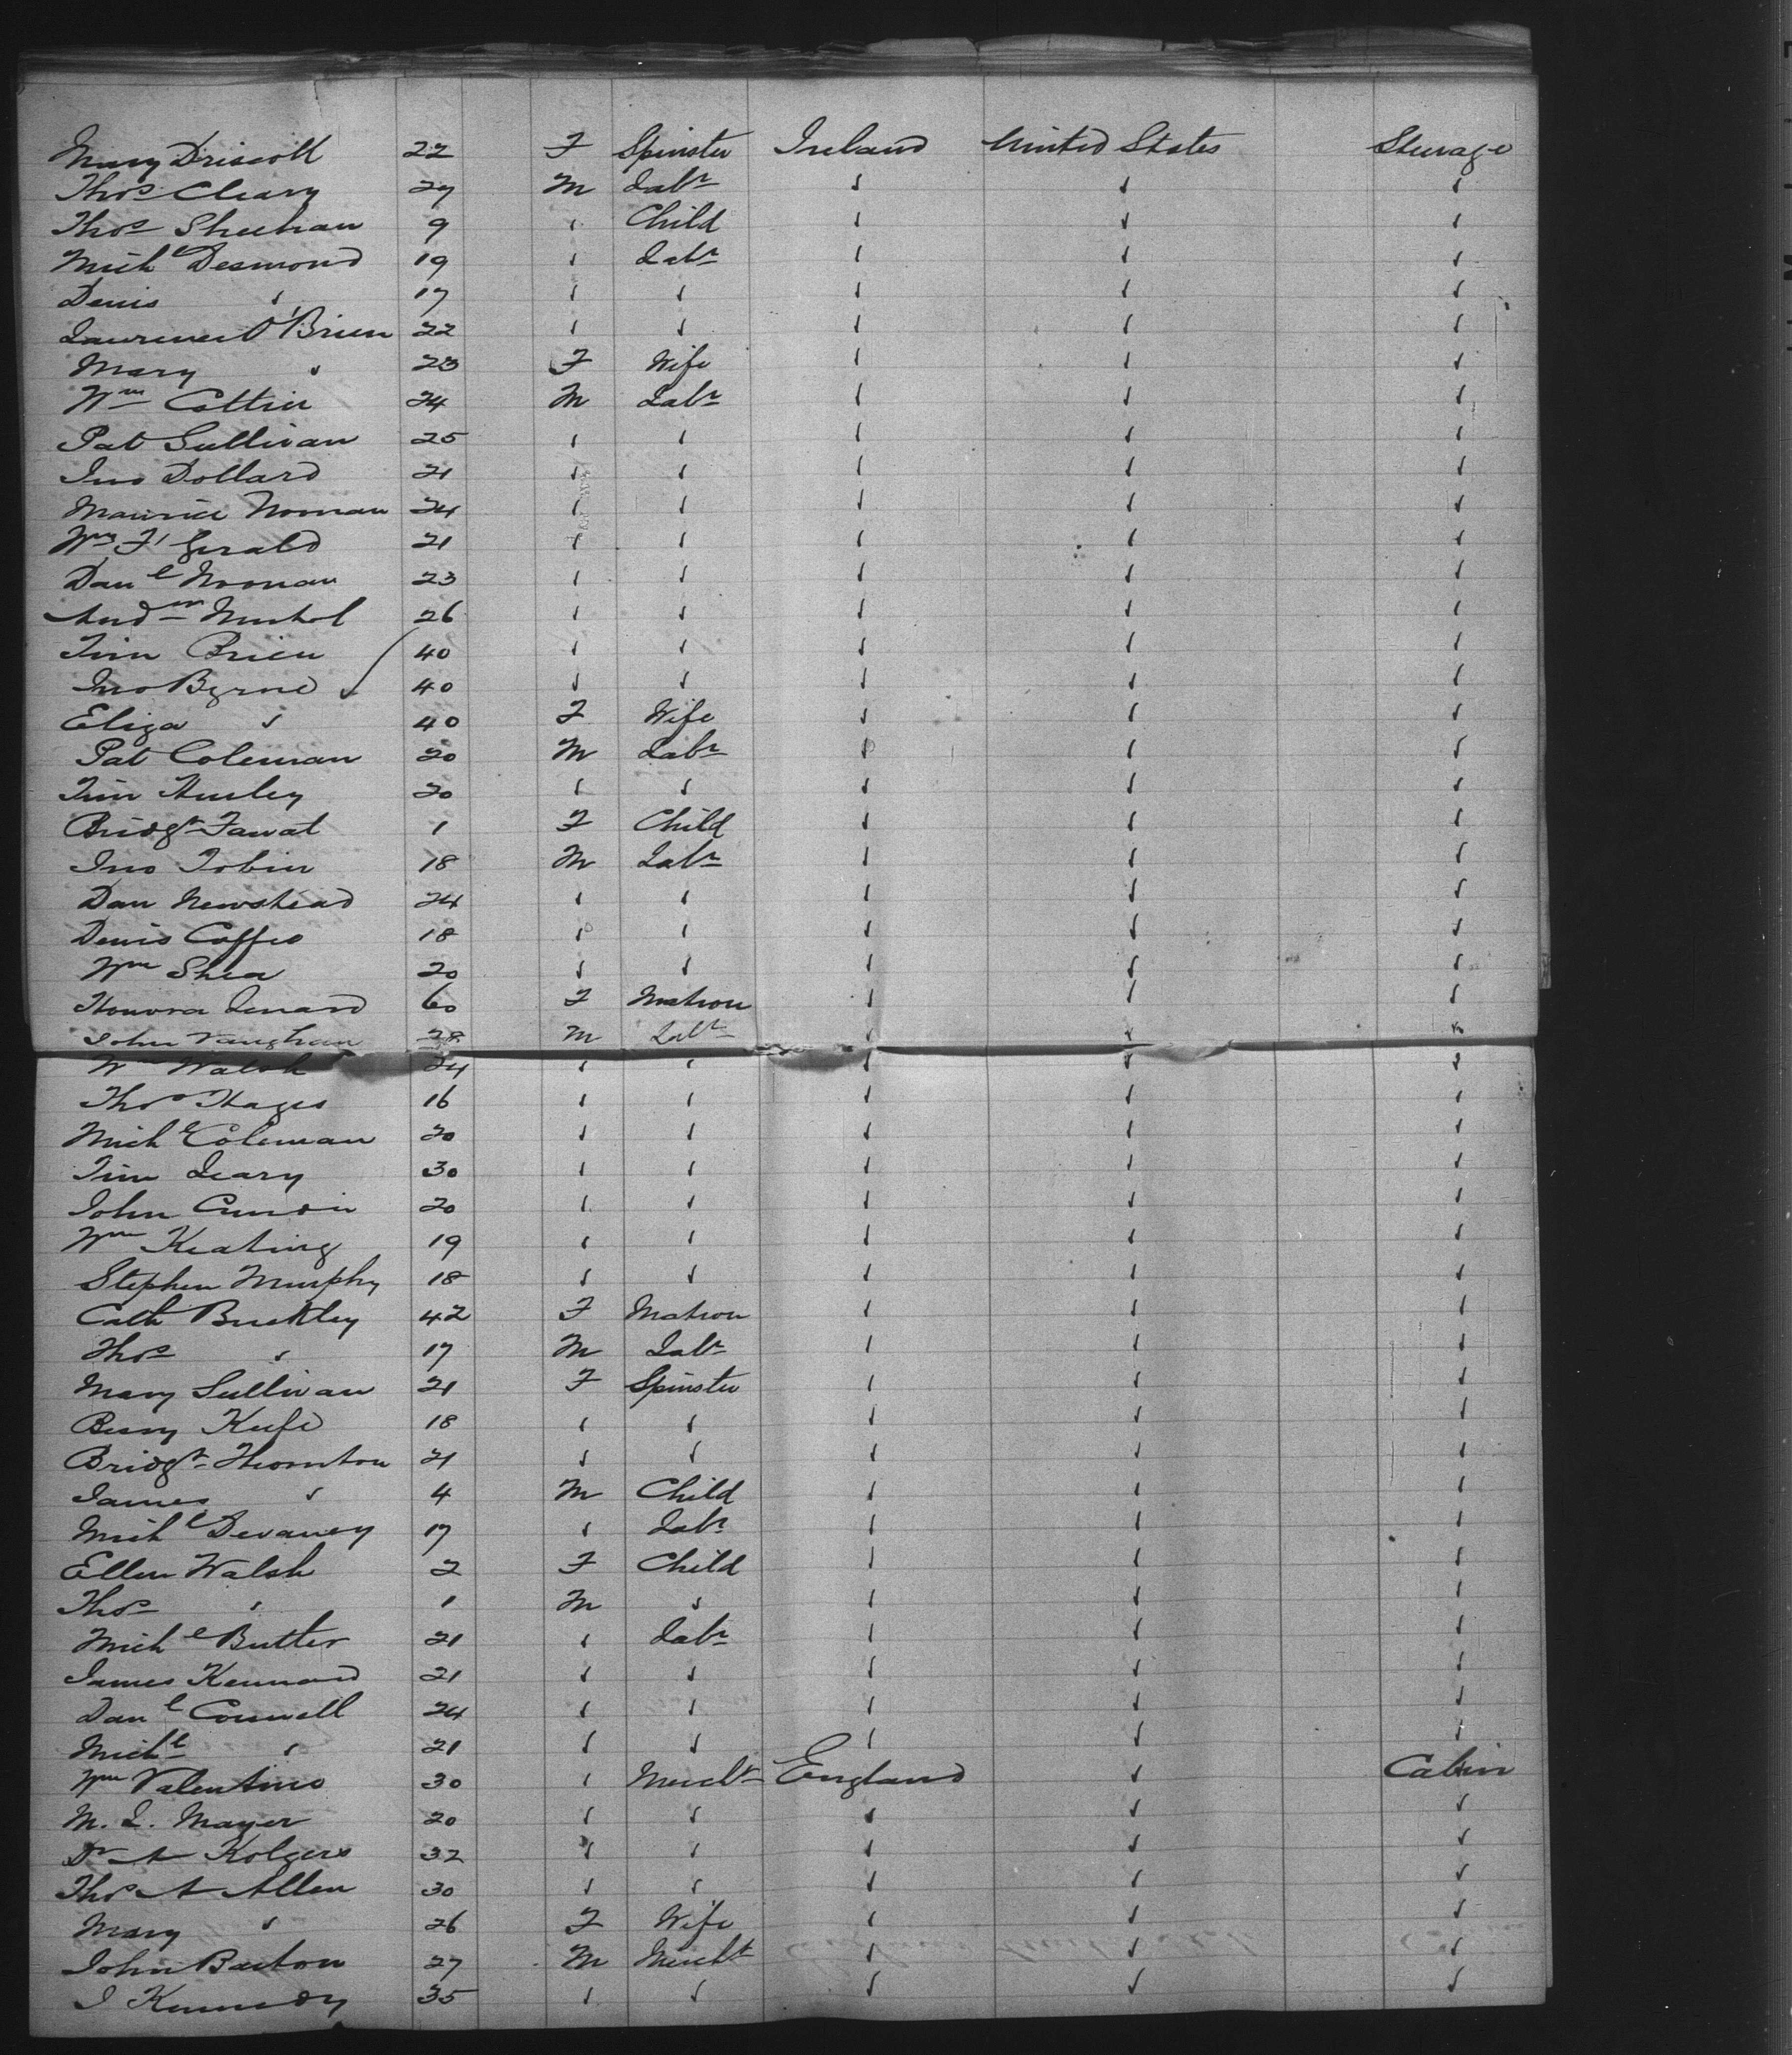 Mary Driscoll 22 F Spinster Ireland United States Steerage
Thos Cleary 27 M Labr " " "
Thos Sheehan 9 " Child " " "
Michl Desmond 19 " Labr " " "
Denis " 17 " " " " "
Laurence O'Brien 22 " " " " "
Mary " 23 F Wife " " "
Wm Cottin 24 M Labr " " "
Pat Sullivan 25 " " " " "
Jno Dollard 21 " " " " "
Maurice Noonan 24 " " " " "
Wm F'Gerald 21 " " " " "
Danl Noonan 23 " " " " "
26 " " " " "
Tim Brien 40 " " " " "
Jno Byrne 40 " " " " "
Eliza " 40 F Wife " " "
Pat Coleman 20 M Labr " " "
Tim Hurley 20 " " " " "
Bridgt 1 F Child " " "
Jno Tobin 18 M Labr " " "
Dan Newstead 24 " " " " "
Denis Coffee 18 " " " " "
Wm Shea 20 " " " " "
Honora Lenard 60 F Matron " " "
John Vaughan 28 M Labr " " "
Wm Walsh 24 " " " " "
Thos Hayes 16 " " " " "
Michl Coleman 20 " " " " "
Tim Leary 30 " " " " "
John 20 " " " " "
Wm Keating 19 " " " " "
Stephen Murphy 18 " " " " "
Cath Buckley 42 F Matron " " "
Thos " 17 M Labr " " "
Mary Sullivan 21 F Spinster " " "
Bessy Keefe 18 " " " " "
Bridgt Thornton 21 " " " " "
James " 4 M Child " " "
Michl Devaney 17 " Labr " " "
Ellen Walsh 2 F Child " " "
Thos " 1 M " " " "
Michl Butler 21 " Labr " " "
James Kennard 21 " " " " "
Danl Connell 24 " " " " "
Michl " 21 " " " " "
Wm Valentine 30 " Mercht England " Cabin
M. L. Mayer 20 " " " " "
Dr A Kolgers 32 " " " " "
Thos A Allen 30 " " " " "
Mary " 26 F Wife " " "
John Barton 27 M Mercht " " "
J Kennedy 35 " " " " "